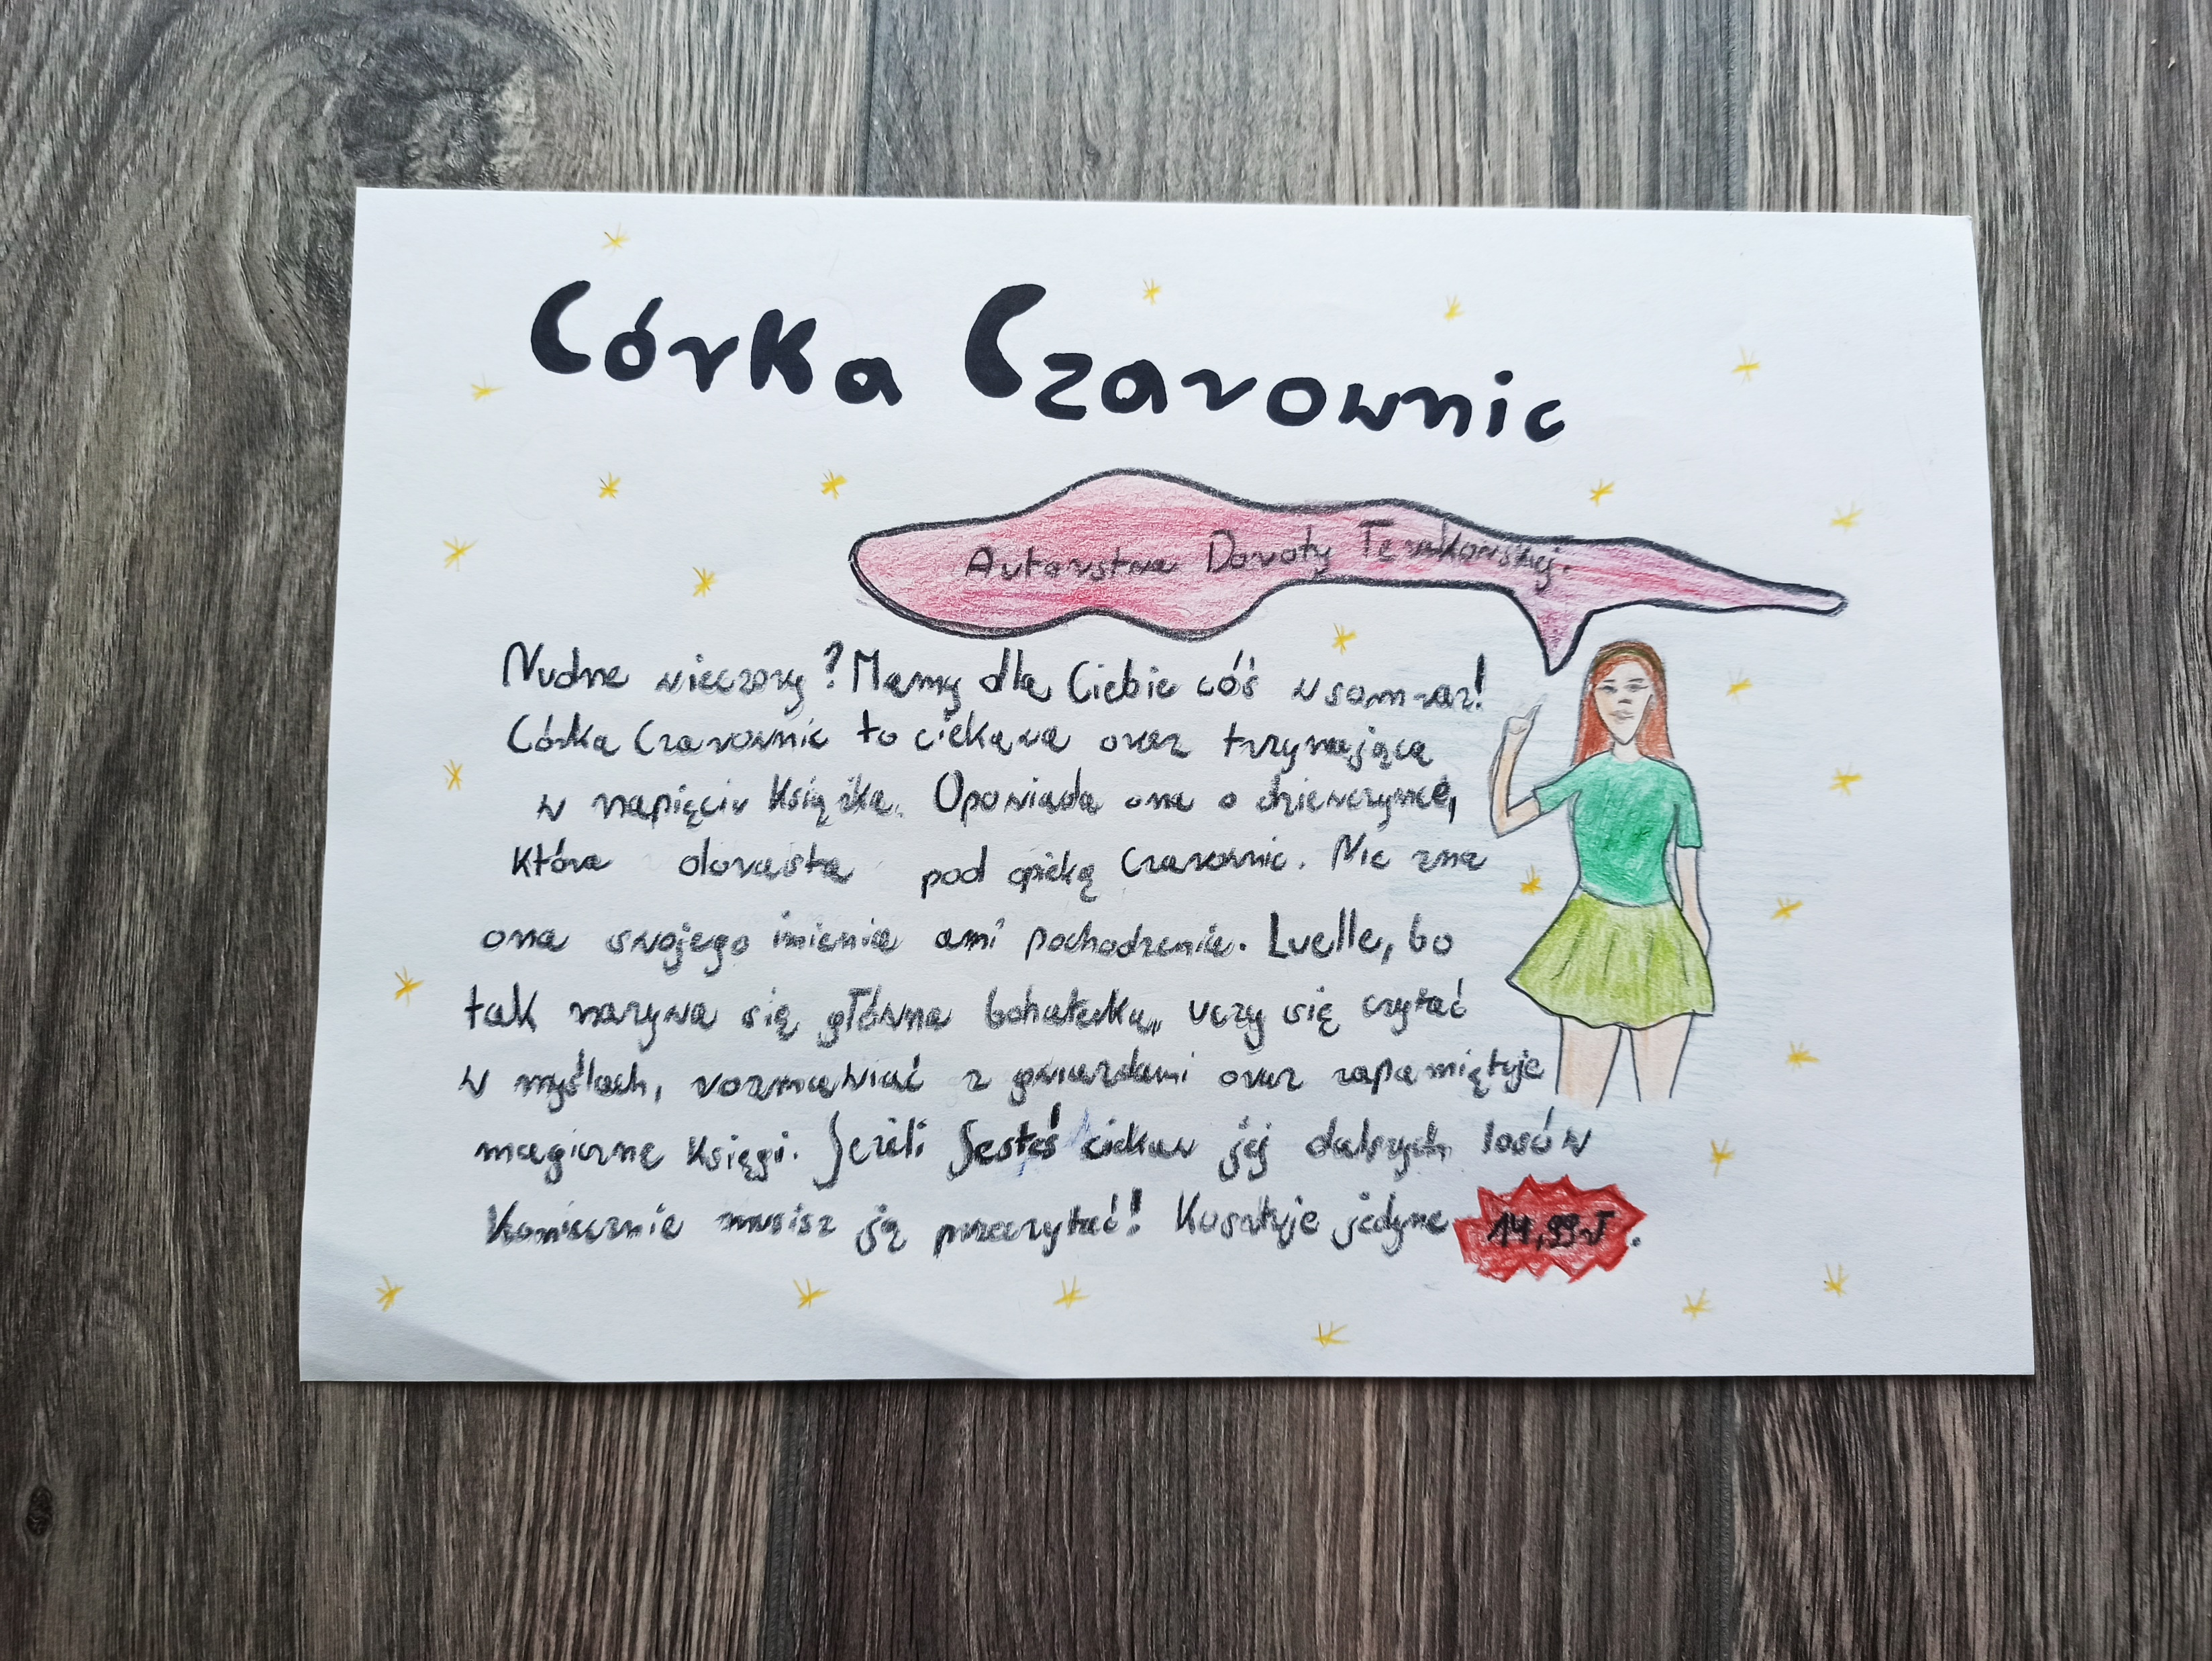 Córka Czarownic
Autorstwa Doroty Terakowskiej.
Nudne wieczory? Mamy dla Ciebie cóś w sam raz!
Córka Czarownic to ciekawa oraz trzymająca
w napięciu książka. Opowiada ona o dziewczynce,
która dorasta pod opieką Czarownic. Nie zna
ona swojego imienia ani pochodzenia. Luelle, bo
tak nazywa się główna bohaterka, uczy się czytać
w myślach, rozmawiać z gwiazdami oraz zapamiętuje
magiczne księgi. Jeżeli Jesteś ciekaw jej dalszych losów
Koniecznie musisz ją przeczytać! Kosztuje jedyne 14,99zł.